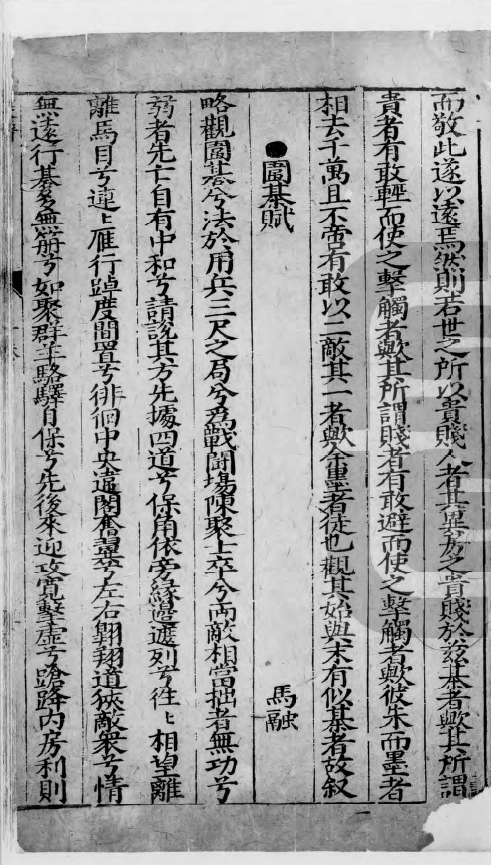 而敬此遂以遠焉然則若世之所以貴賤人者其異房之貴賤於兹棊者歟其所謂
貴者有敢輕而使之擊觸者歟其所謂賤者有敢避而使之擊觸者歟彼朱而墨者
相去千萬且不啻有敢以二敵其一者歟余墨者徒也觀其始與末有似棊者故叙
●圍棊賦 馬融
略觀圍棊兮法於用兵三尺之局兮爲戰鬪場陳聚士卒兮兩敵相當拙者無功兮
弱者先亡自有中和兮請說其方先據四道兮保角依旁緣邉遮列兮往〻相望離
離馬目兮連〻雁行踔度間置兮徘徊中央違閣奮翼兮左右翺翔道狹敵衆兮情
無遠行棊多無册兮如聚群羊駱驛自保兮先後來迎攻寛擊虛兮蹌踭内房利則